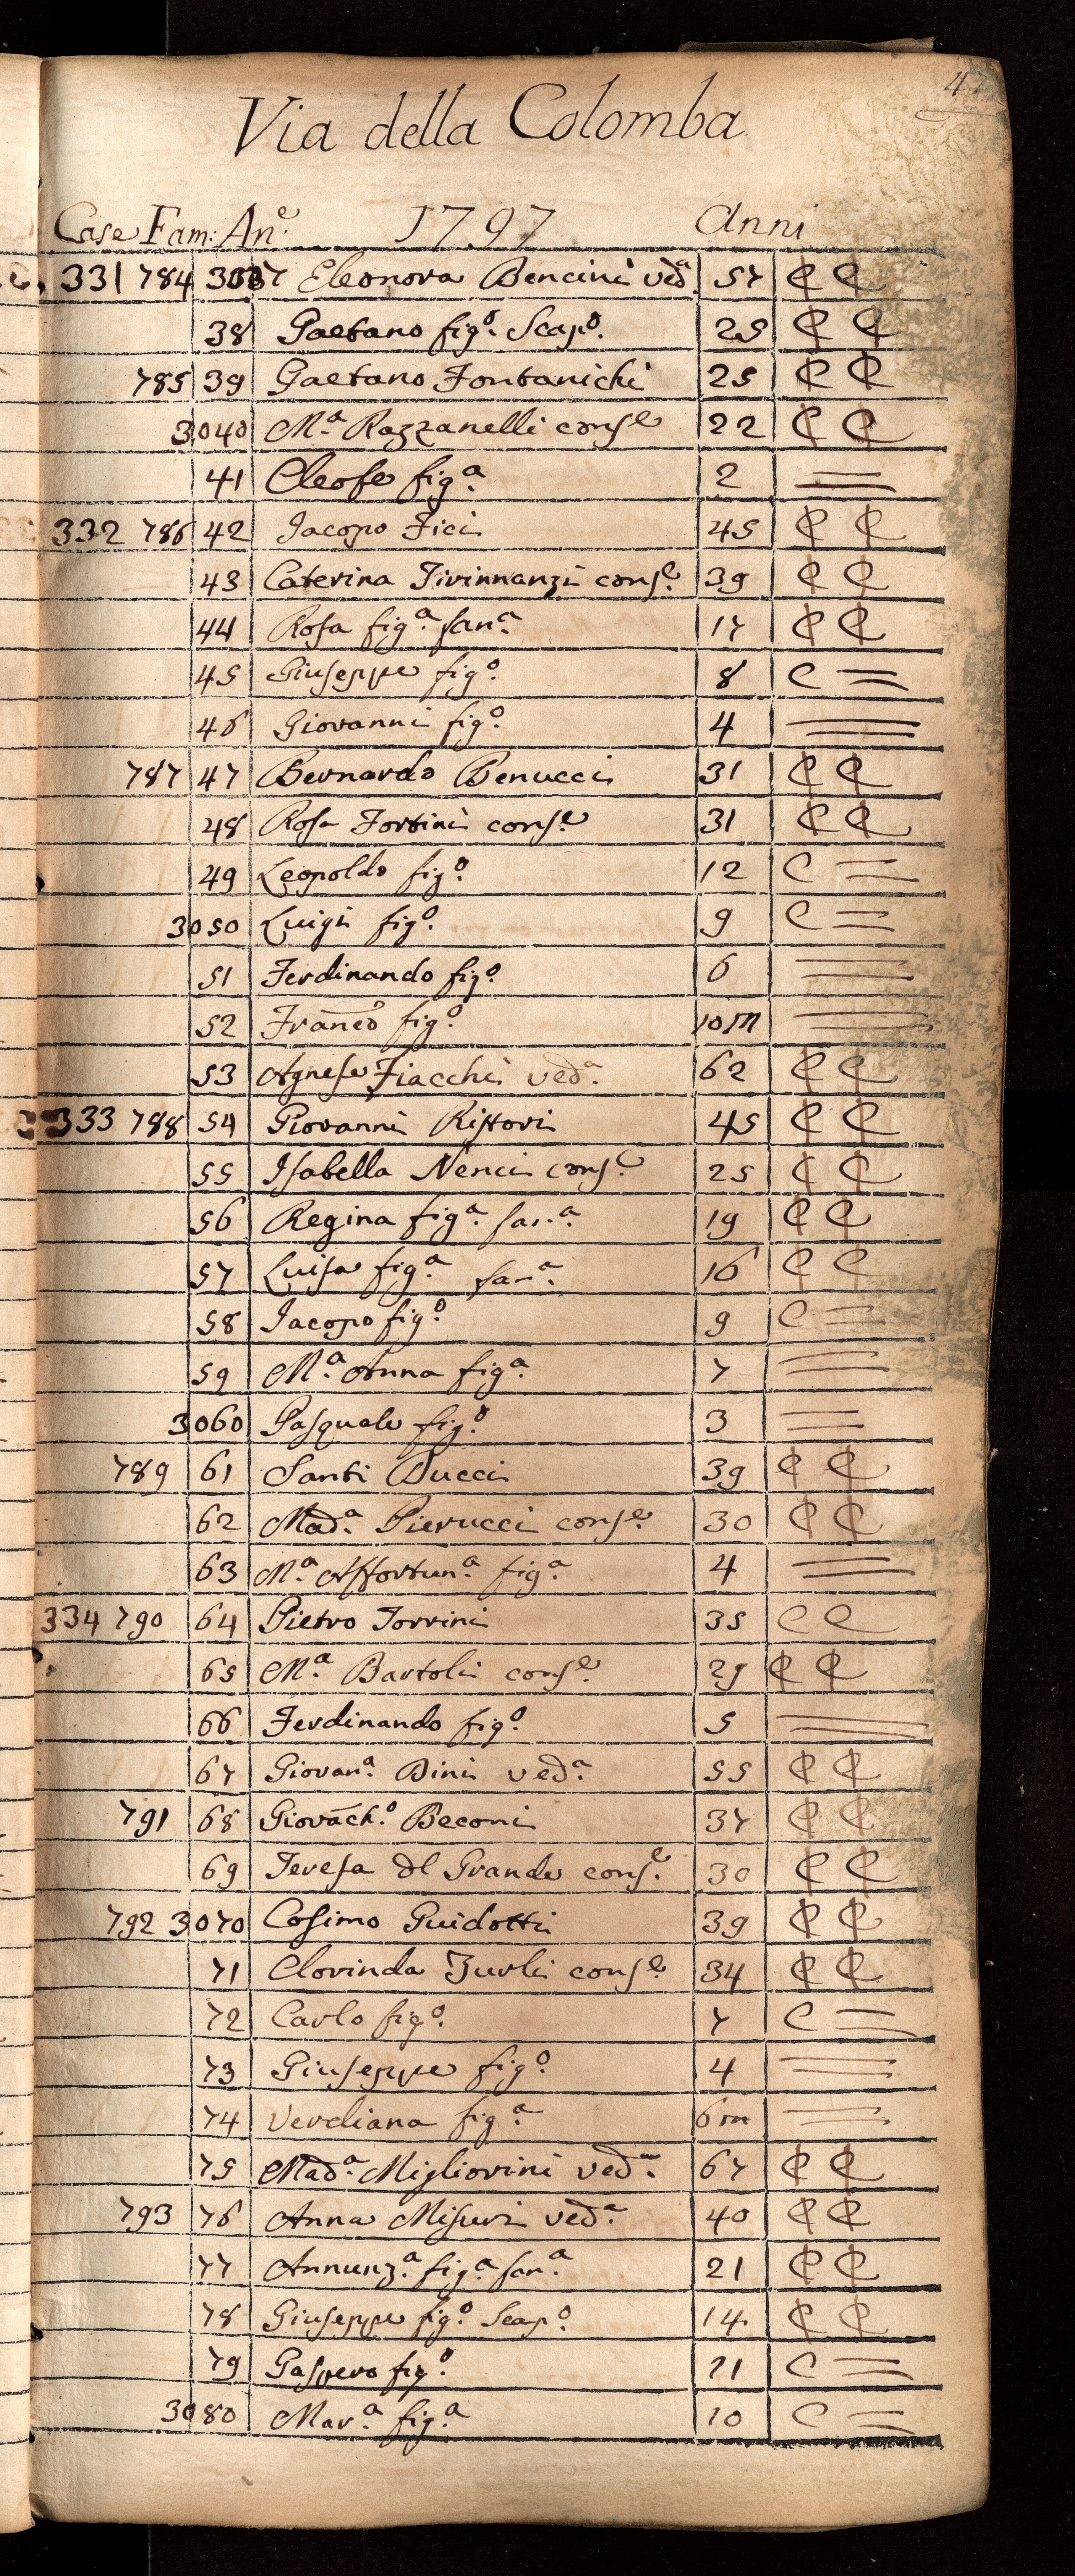 4
Via della Colomba
Case Fam: An.e 1797 Anni
331 784 3037 Eleonora Bencini ved.a 57 C C
38 Gaetano fig.o Scap.o 25 C C
785 39 Gaetano Fontanichi 25 C C
3040 M.a Razzanelli cons.e 22 C C
41 Cleofe fig.a 2 =
332 786 42 Jacopo Fici 45 C C
43 Caterina Tirinnanzi cons.e 39 C C
44 Rosa fig.a fan.a 17 C C
45 Giuseppe fig.o 8 C =
46 Giovanni fig.o 4 =
787 47 Bernardo Benucci 31 C C
48 Rosa Fortini cons.e 31 C C
49 Leopoldo fig.o 12 C =
3050 Luigi fig.o 9 C =
51 Ferdinando fig.o 6 =
52 Franco fig.o 10m =
53 Agnese Fiacchi ved.a 62 C C
333 788 54 Giovanni Ristori 45 C C
55 Isabella Nenci cons.e 25 C C
56 Regina fig.a fan.a 19 C C
57 Luisa fig.a fan.a 16 C C
58 Jacopo fig.o 9 C =
59 M.a Anna fig.a 7 =
3060 Pasquale fig.o 3 =
789 61 Santi Ducci 39 C C
62 Mad.a Pierucci cons.e 30 C C
63 M.a Affortun.a fig.a 4 =
334 790 64 Pietro Torrini 35 C C
65 M.a Bartoli cons.e 29 C C
66 Ferdinando fig.o 5 =
67 Giovan.a Bini ved.a 55 C C
791 68 Giovach.o Beconi 37 C C
69 Teresa del Grande cons.e 30 C C
792 3070 Cosimo Guidotti 39 C C
71 Clorinda Turli cons.e 34 C C
72 Carlo fig.o 7 C =
73 Giuseppe fig.o 4 =
74 Verdiana fig.a 6m =
75 Mad.a Migliorini ved.a 67 C C
793 76 Anna Misuri ved.a 40 C C
77 Annunz.a fig.a fan.a 21 C C
78 Giuseppe fig.o Scap.o 14 C C
79 Gaspero fig.o 11 C =
3080 Mar.a fig.a 10 C =